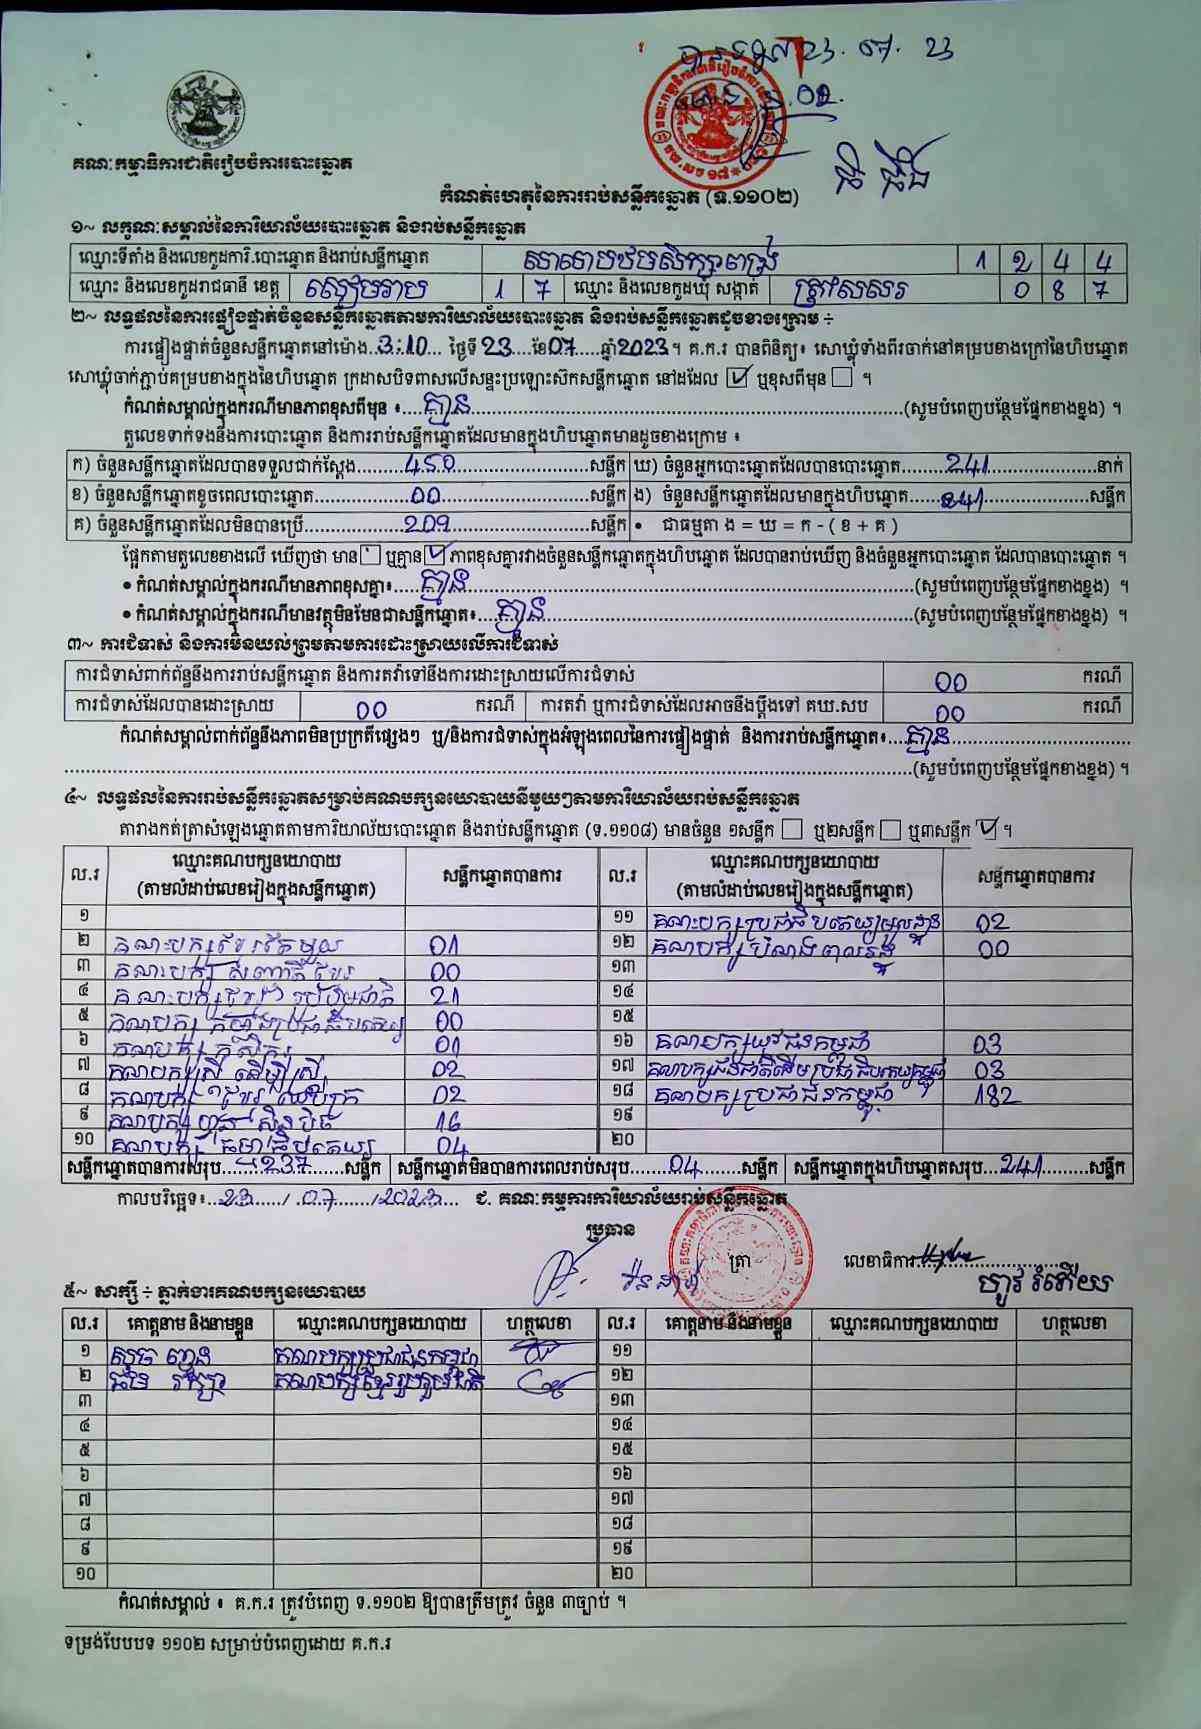 បានទទួល 23. 07. 23
គណៈកម្មាធិការជាតិរៀបចំការបោះឆ្នោត
កំណត់ហេតុនៃការរាប់សន្លឹកឆ្នោត (ទ.១១០២)
១~ លក្ខណៈសម្គាល់នៃការិយាល័យបោះឆ្នោត និងរាប់សន្លឹកឆ្នោត
ឈ្មោះទីតាំង និងលេខកូដការិ.បោះឆ្នោត និងរាប់សន្លឹកឆ្នោត សាលាបឋមសិក្សាពង្រ 1 2 4 4
ឈ្មោះ និងលេខកូដរាជធានី ខេត្ត សៀមរាប 1 7 ឈ្មោះ និងលេខកូដឃុំ សង្កាត់ ត្រាវសសរ 0 8 7
២~ លទ្ធផលនៃការផ្ទៀងផ្ទាត់ចំនួនសន្លឹកឆ្នោតតាមការិយាល័យបោះឆ្នោត និងរាប់សន្លឹកឆ្នោតដូចខាងក្រោម ÷
ការផ្ទៀងផ្ទាត់ចំនួនសន្លឹកឆ្នោតនៅម៉ោង 3:10 ថ្ងៃទី 23 ខែ 07 ឆ្នាំ 2023 ។ គ.ក.រ បានពិនិត្យ៖ សោឃ្លុំទាំងពីរចាក់នៅគម្របខាងក្រៅនៃហិបឆ្នោត
សោឃ្លុំចាក់ភ្ជាប់គម្របខាងក្នុងនៃហិបឆ្នោត ក្រដាសបិទពាសលើសន្ទះប្រឡោះស៊កសន្លឹកឆ្នោត នៅដដែល ☑ ឬខុសពីមុន ☐ ។
កំណត់សម្គាល់ក្នុងករណីមានភាពខុសពីមុន ៖ គ្មាន (សូមបំពេញបន្ថែមផ្នែកខាងខ្នង) ។
តួលេខទាក់ទងនឹងការបោះឆ្នោត និងការរាប់សន្លឹកឆ្នោតដែលមានក្នុងហិបឆ្នោតមានដូចខាងក្រោម ៖
ក) ចំនួនសន្លឹកឆ្នោតដែលបានទទួលជាក់ស្តែង 450 សន្លឹក ឃ) ចំនួនអ្នកបោះឆ្នោតដែលបានបោះឆ្នោត 241 នាក់
ខ) ចំនួនសន្លឹកឆ្នោតខូចពេលបោះឆ្នោត 00 សន្លឹក ង) ចំនួនសន្លឹកឆ្នោតដែលមានក្នុងហិបឆ្នោត 241 សន្លឹក
គ) ចំនួនសន្លឹកឆ្នោតដែលមិនបានប្រើ 209 សន្លឹក • ជាធម្មតា ង = ឃ = ក - ( ខ + គ )
ផ្អែកតាមតួលេខខាងលើ ឃើញថា មាន ☐ ឬគ្មាន ☑ ភាពខុសគ្នារវាងចំនួនសន្លឹកឆ្នោតក្នុងហិបឆ្នោត ដែលបានរាប់ឃើញ និងចំនួនអ្នកបោះឆ្នោត ដែលបានបោះឆ្នោត ។
• កំណត់សម្គាល់ក្នុងករណីមានភាពខុសគ្នា៖ គ្មាន (សូមបំពេញបន្ថែមផ្នែកខាងខ្នង) ។
• កំណត់សម្គាល់ក្នុងករណីមានវត្ថុមិនមែនជាសន្លឹកឆ្នោត៖ គ្មាន (សូមបំពេញបន្ថែមផ្នែកខាងខ្នង) ។
៣~ ការជំទាស់ និងការមិនយល់ព្រមតាមការដោះស្រាយលើការជំទាស់
ការជំទាស់ពាក់ព័ន្ធនឹងការរាប់សន្លឹកឆ្នោត និងការតវ៉ាទៅនឹងការដោះស្រាយលើការជំទាស់ 00 ករណី
ការជំទាស់ដែលបានដោះស្រាយ 00 ករណី ការតវ៉ា ឬការជំទាស់ដែលអាចនឹងប្តឹងទៅ គឃ.សប 00 ករណី
កំណត់សម្គាល់ពាក់ព័ន្ធនឹងភាពមិនប្រក្រតីផ្សេងៗ ឬ/និងការជំទាស់ក្នុងអំឡុងពេលនៃការផ្ទៀងផ្ទាត់ និងការរាប់សន្លឹកឆ្នោត៖ គ្មាន
(សូមបំពេញបន្ថែមផ្នែកខាងខ្នង) ។
៤~ លទ្ធផលនៃការរាប់សន្លឹកឆ្នោតសម្រាប់គណបក្សនយោបាយនីមួយៗតាមការិយាល័យរាប់សន្លឹកឆ្នោត
តារាងកត់ត្រាសំឡេងឆ្នោតតាមការិយាល័យបោះឆ្នោត និងរាប់សន្លឹកឆ្នោត (ទ.១១០៨) មានចំនួន ១សន្លឹក ☐ ឬ២សន្លឹក ☐ ឬ៣សន្លឹក ☑ ។
ល.រ ឈ្មោះគណបក្សនយោបាយ (តាមលំដាប់លេខរៀងក្នុងសន្លឹកឆ្នោត) សន្លឹកឆ្នោតបានការ ល.រ ឈ្មោះគណបក្សនយោបាយ (តាមលំដាប់លេខរៀងក្នុងសន្លឹកឆ្នោត) សន្លឹកឆ្នោតបានការ
១ ១១ គណបក្សប្រជាធិបតេយ្យមូលដ្ឋាន 02
២ គណបក្សខ្មែរតែមួយ 01 ១២ គណបក្ស 00
៣ គណបក្ស សញ្ជាតិខ្មែរ 00 ១៣
៤ គណបក្សខ្មែររួបរួមជាតិ 21 ១៤
៥ គណបក្ស កម្លាំងប្រជាធិបតេយ្យ 00 ១៥
៦ គណបក្ស កសិករ 01 ១៦ គណបក្សយុវជនកម្ពុជា 03
៧ គណបក្សស្រី ដើម្បីស្រី 02 ១៧ គណបក្សជនជាតិដើមប្រជាធិបតេយ្យកម្ពុជា 03
៨ គណបក្ស ខ្មែរ ឈប់ក្រ 02 ១៨ គណបក្សប្រជាជនកម្ពុជា 182
៩ គណបក្សហ្វ៊ុនស៊ិនប៉ិច 16 ១៩
១០ គណបក្ស ធម្មាធិបតេយ្យ 04 ២០
សន្លឹកឆ្នោតបានការសរុប 237 សន្លឹក សន្លឹកឆ្នោតមិនបានការពេលរាប់សរុប 04 សន្លឹក សន្លឹកឆ្នោតក្នុងហិបឆ្នោតសរុប 241 សន្លឹក
កាលបរិច្ឆេទ៖ 23 / 07 / 2023 ជ. គណៈកម្មការការិយាល័យរាប់សន្លឹកឆ្នោត
ប្រធាន
ត្រា លេខាធិការ
៥~ សាក្សី ÷ ភ្នាក់ងារគណបក្សនយោបាយ
ល.រ គោត្តនាម និងនាមខ្លួន ឈ្មោះគណបក្សនយោបាយ ហត្ថលេខា ល.រ គោត្តនាម និងនាមខ្លួន ឈ្មោះគណបក្សនយោបាយ ហត្ថលេខា
១ គណបក្សប្រជាជនកម្ពុជា ១១
២ គណបក្សខ្មែររួបរួមជាតិ ១២
៣ ១៣
៤ ១៤
៥ ១៥
៦ ១៦
៧ ១៧
៨ ១៨
៩ ១៩
១០ ២០
កំណត់សម្គាល់ ៖ គ.ក.រ ត្រូវបំពេញ ទ.១១០២ ឱ្យបានត្រឹមត្រូវ ចំនួន ៣ច្បាប់ ។
ទម្រង់បែបបទ ១១០២ សម្រាប់បំពេញដោយ គ.ក.រ